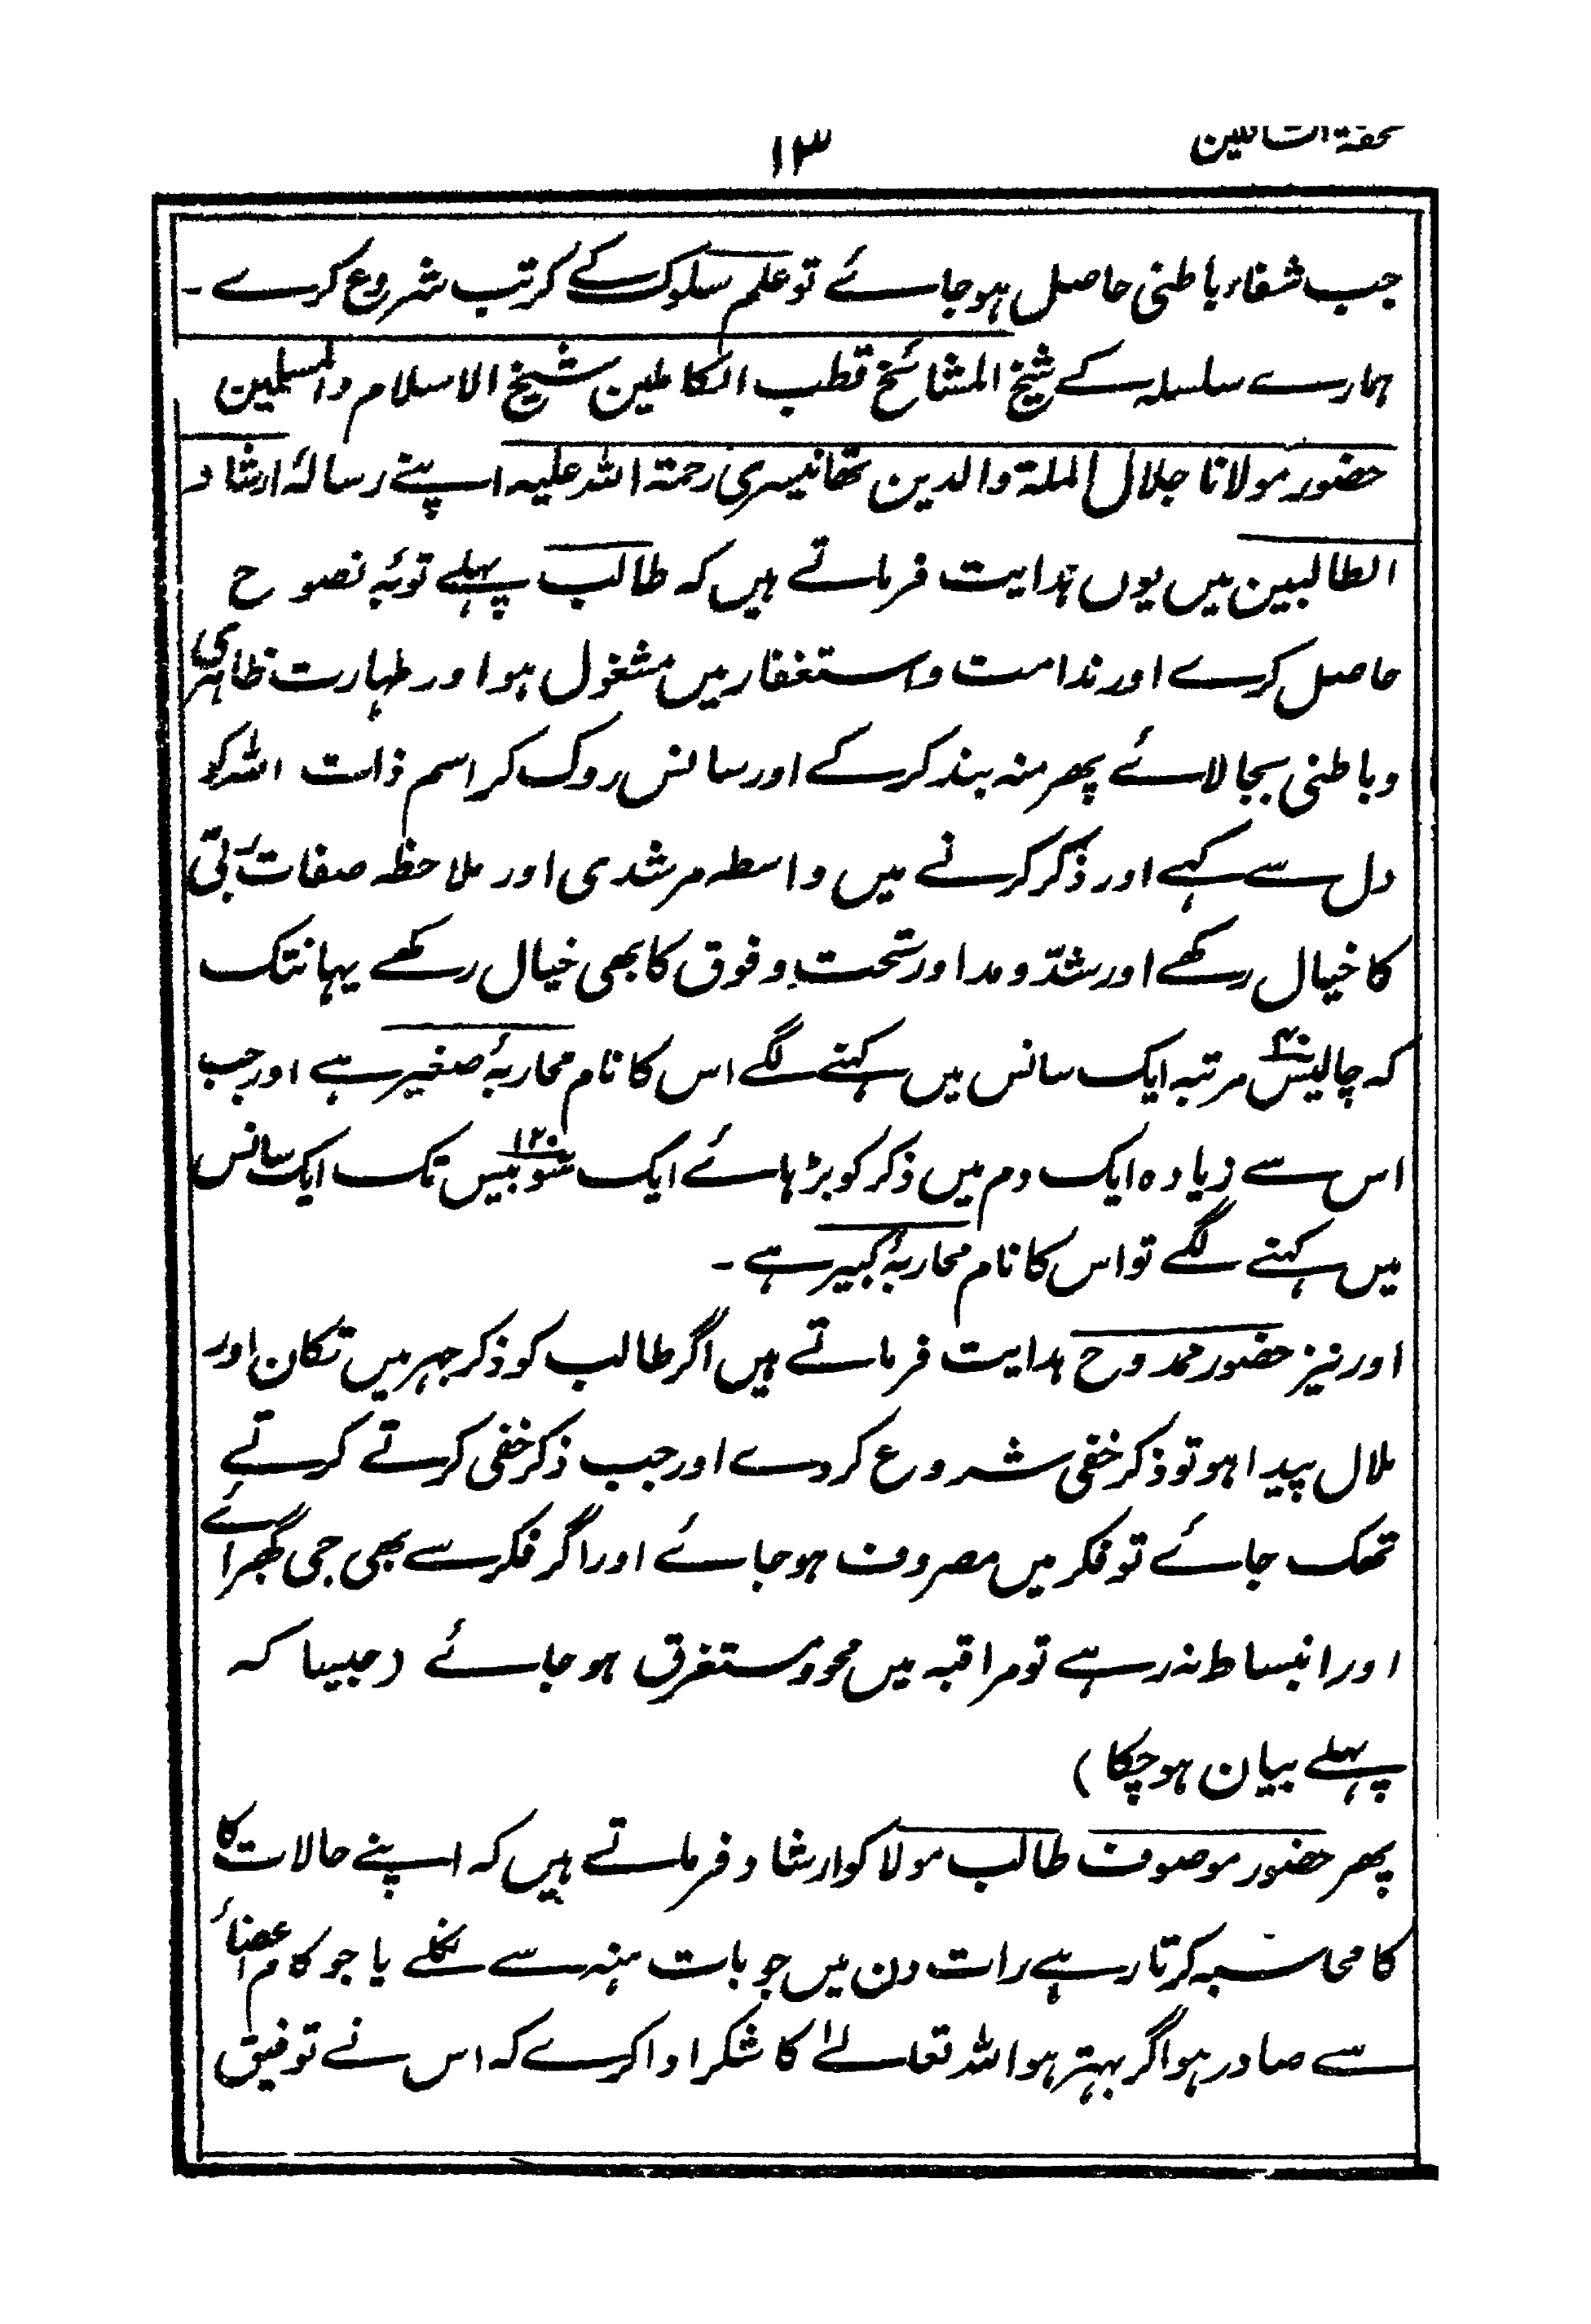 تحفۃ السالکین ۱۳
جب شفاء باطنی حاصل ہو جائے تو علم سلوک کے کرتب شروع کرے۔
ہمارے سلسلہ کے شیخ المشائخ قطب الکاملین شیخ الاسلام والمسلمین
حضور مولانا جلال الملۃ والدین تھانیسری رحمۃ اللہ علیہ اپنے رسالۂ ارشاد
الطالبین میں یوں ہدایت فرماتے ہیں کہ طالب پہلے توبۂ نصوح
حاصل کرے اور ندامت واستغفار میں مشغول ہو اور طہارت ظاہری
وباطنی بجالائے پھر منہ بند کر کے اور سانس روک کر اسم ذات اللہ کو
دل سے کہے اور ذکر کرنے میں واسطہ مرشدی اور ملاحظہ صفات ربّی
کا خیال رکھے اور شدّ ومد اور تحت وفوق کا بھی خیال رکھے یہانتک
کہ چالیس ۴۰ مرتبہ ایک سانس میں کہنے لگے اس کا نام محاربۂ صغیر ہے اور جب
اس سے زیادہ ایک دم میں ذکر کو بڑہائے ایک سو بیس ۱۲۰ تک ایک سانس
میں کہنے لگے تو اس کا نام محاربۂ کبیر ہے۔
اور نیز حضور ممدوح ہدایت فرماتے ہیں اگر طالب کو ذکر جہر میں تکان اور
ملال پیدا ہو تو ذکر خفی شروع کر دے اور جب ذکر خفی کرتے کرتے
تھک جائے تو فکر میں مصروف ہو جائے اور اگر فکر سے بھی جی گھبرائے
اور انبساط نہ رہے تو مراقبہ میں محو ومستغرق ہو جائے (جیسا کہ
پہلے بیان ہوچکا)
پھر حضور موصوف طالب مولا کو ارشاد فرماتے ہیں کہ اپنے حالات کا
کا محاسبہ کرتا رہے رات دن میں جو بات منہ سے نکلے یا جو کام اعضاء
سے صادر ہو اگر بہتر ہو اللہ تعالےٰ کا شکر ادا کرے کہ اس نے توفیق